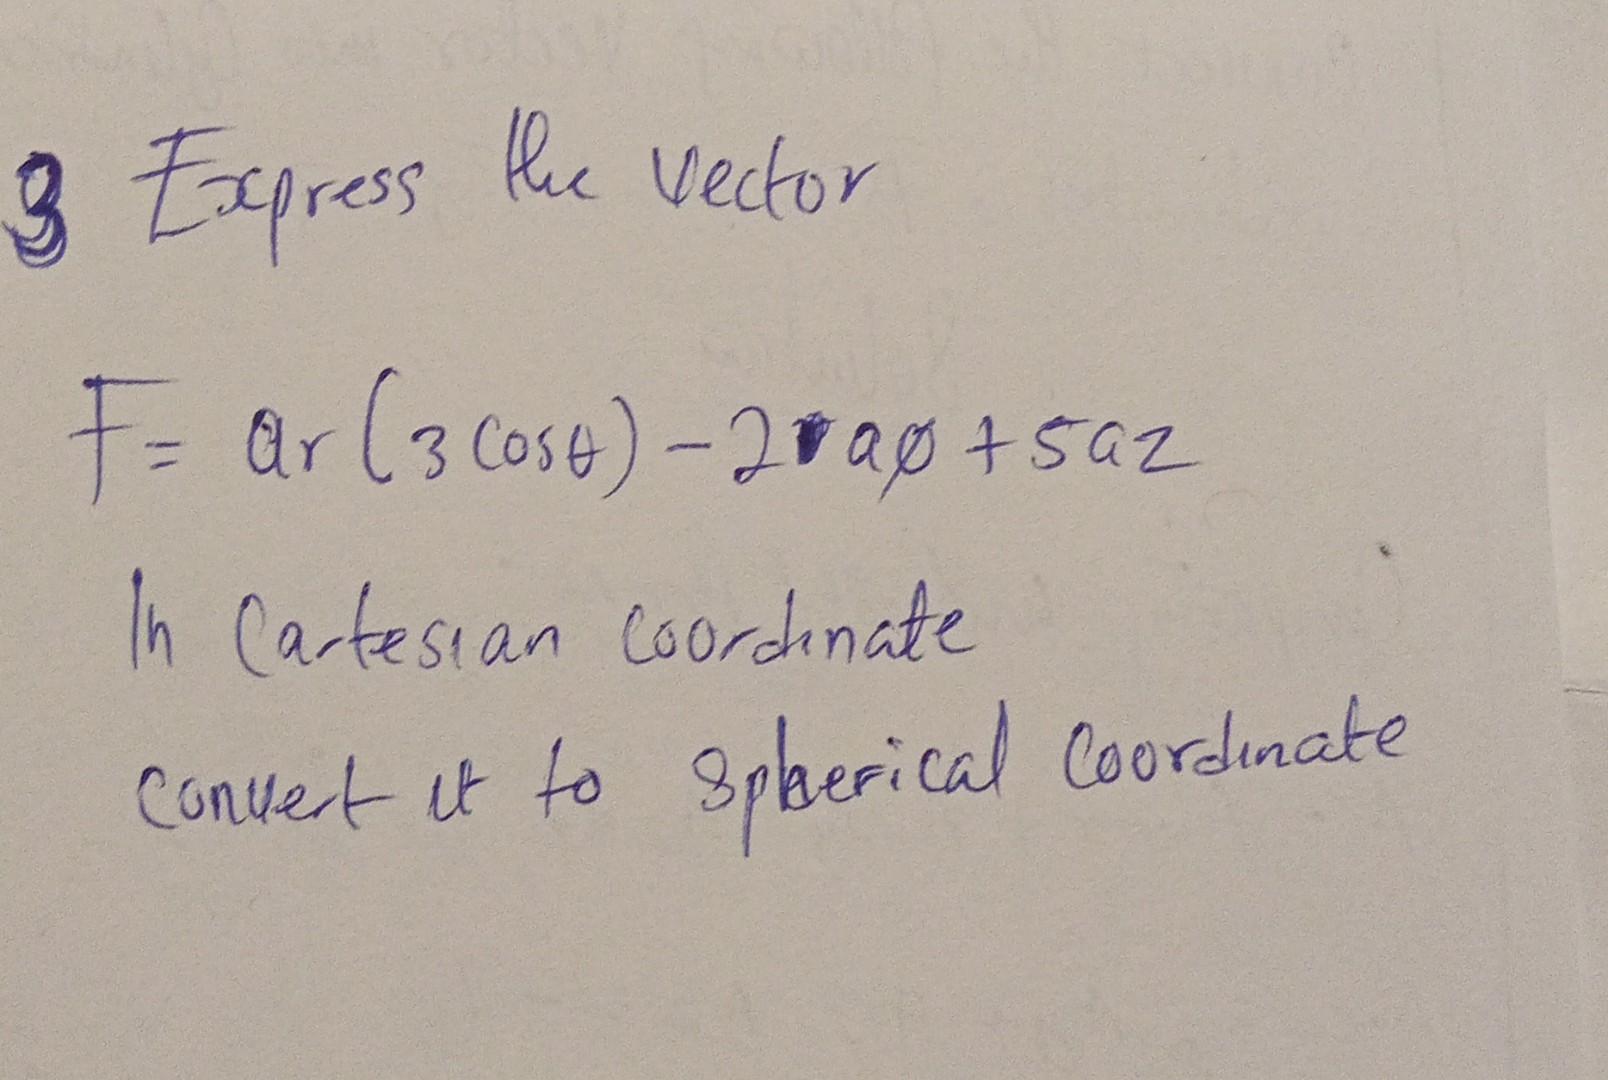 3 Express the vector
F = ar (3 cosθ) - 2r aø + 5az
In Cartesian coordinate
convert it to Spherical Coordinate